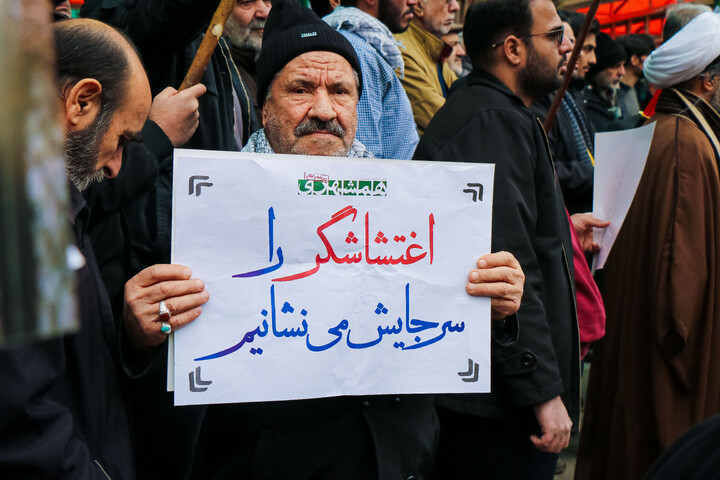 همشهری
اغتشاشگر را
سر جایش می‌نشانیم